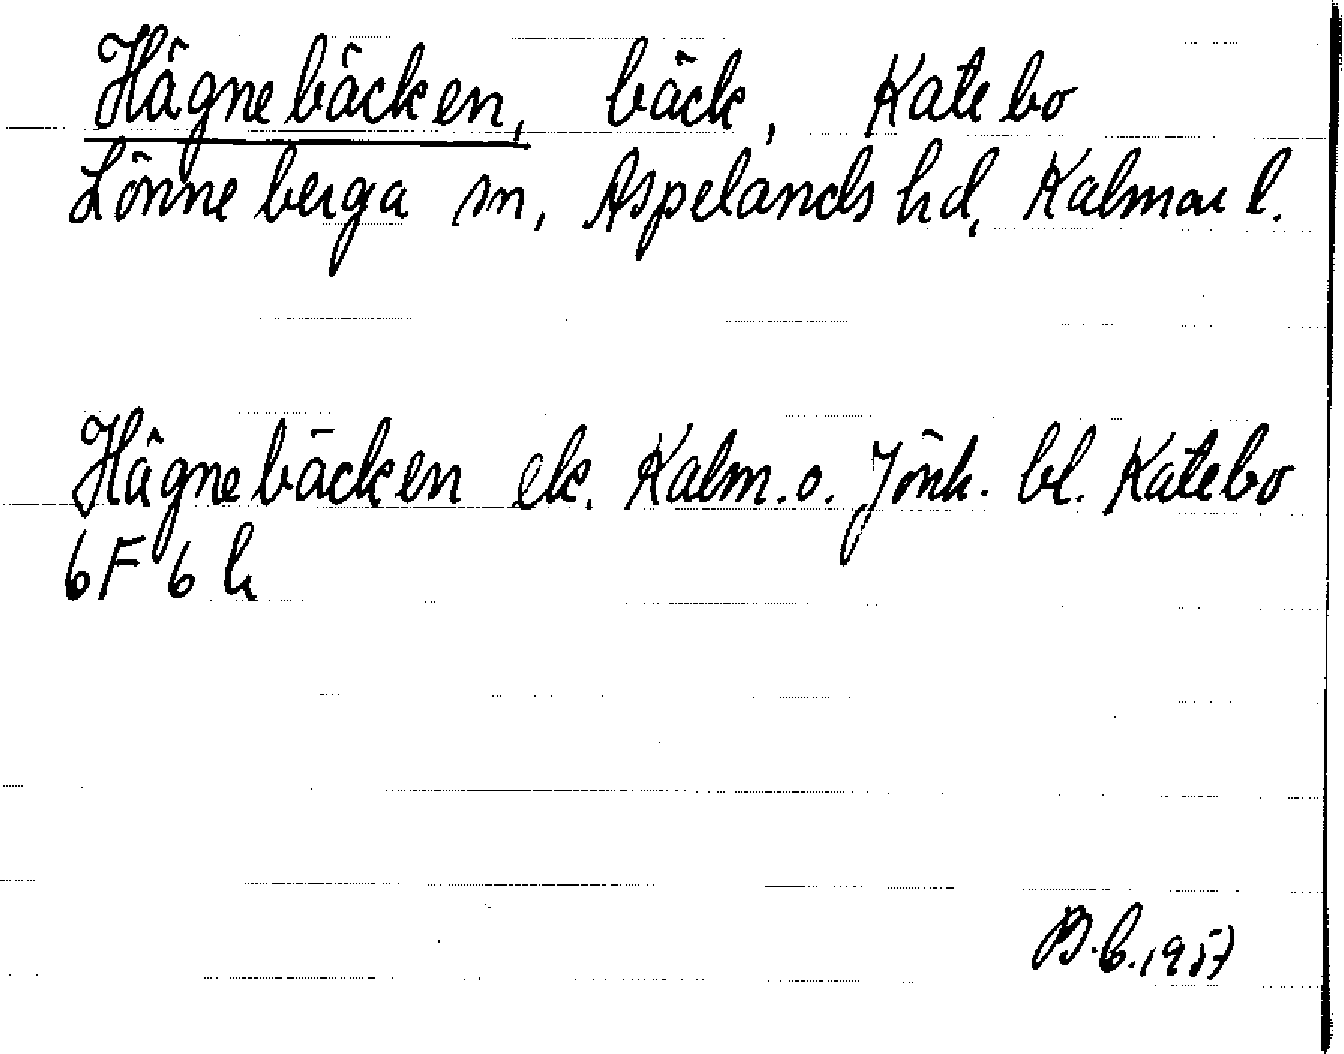 Hägnebäcken, bäck, Katebo
Lönneberga sn, Aspelands hd, Kalmar l.
Hägnebäcken ek. Kalm. o. Jönk. bl. Katebo
6F 6h
B.b. 1957